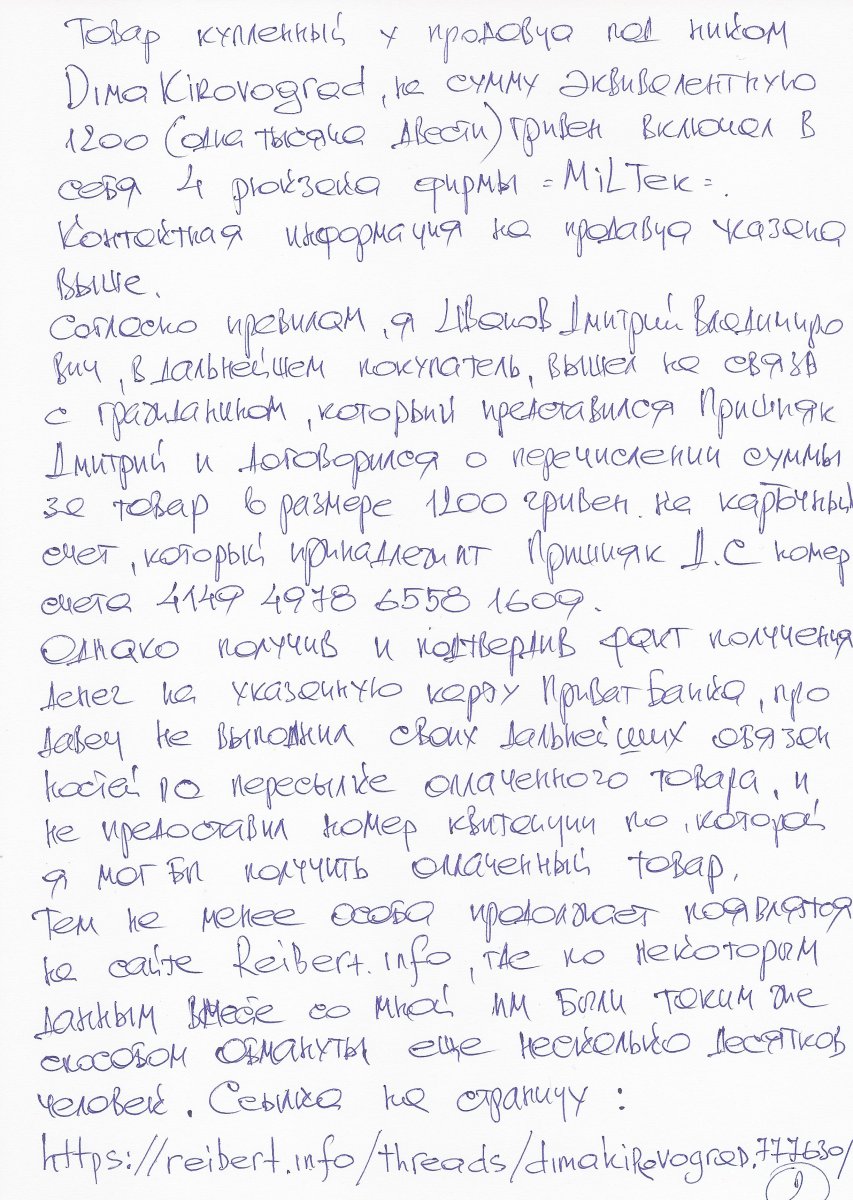 Товар купленный у продовца под ником
DimaKirovograd, на сумму эквивалентную
1200 (одна тысяча двести) гривен включал в
себя 4 рюкзака фирмы =MiLTek=.
Контактная информация на продавца указана
выше.
Согласно правилам, я Иванов Дмитрий Владимиро
вич, в дальнейшем покупатель, вышел на связь
с гражданином, который представился Пришняк
Дмитрий и договорился о перечислении суммы
за товар в размере 1200 гривен на карточный
счет, который принадлежит Пришняк Д.С номер
счета 4149 4978 6558 1609.
Однако получив и подтвердив факт получения
денег на указанную карту ПриватБанка, про
давец не выполнил своих дальнейших обязан
ностей по пересылке оплаченного товара, и
не предоставил номер квитанции по которой
я мог бы получить оплаченный товар.
Тем не менее особа продолжает появлятся
на сайте Reibert.info, где по некоторым
данным вместе со мной им были таким же
способом обмануты еще несколько десятков
человек. Ссылка на страницу :
https://reibert.info/threads/dimakirovograd.777630/